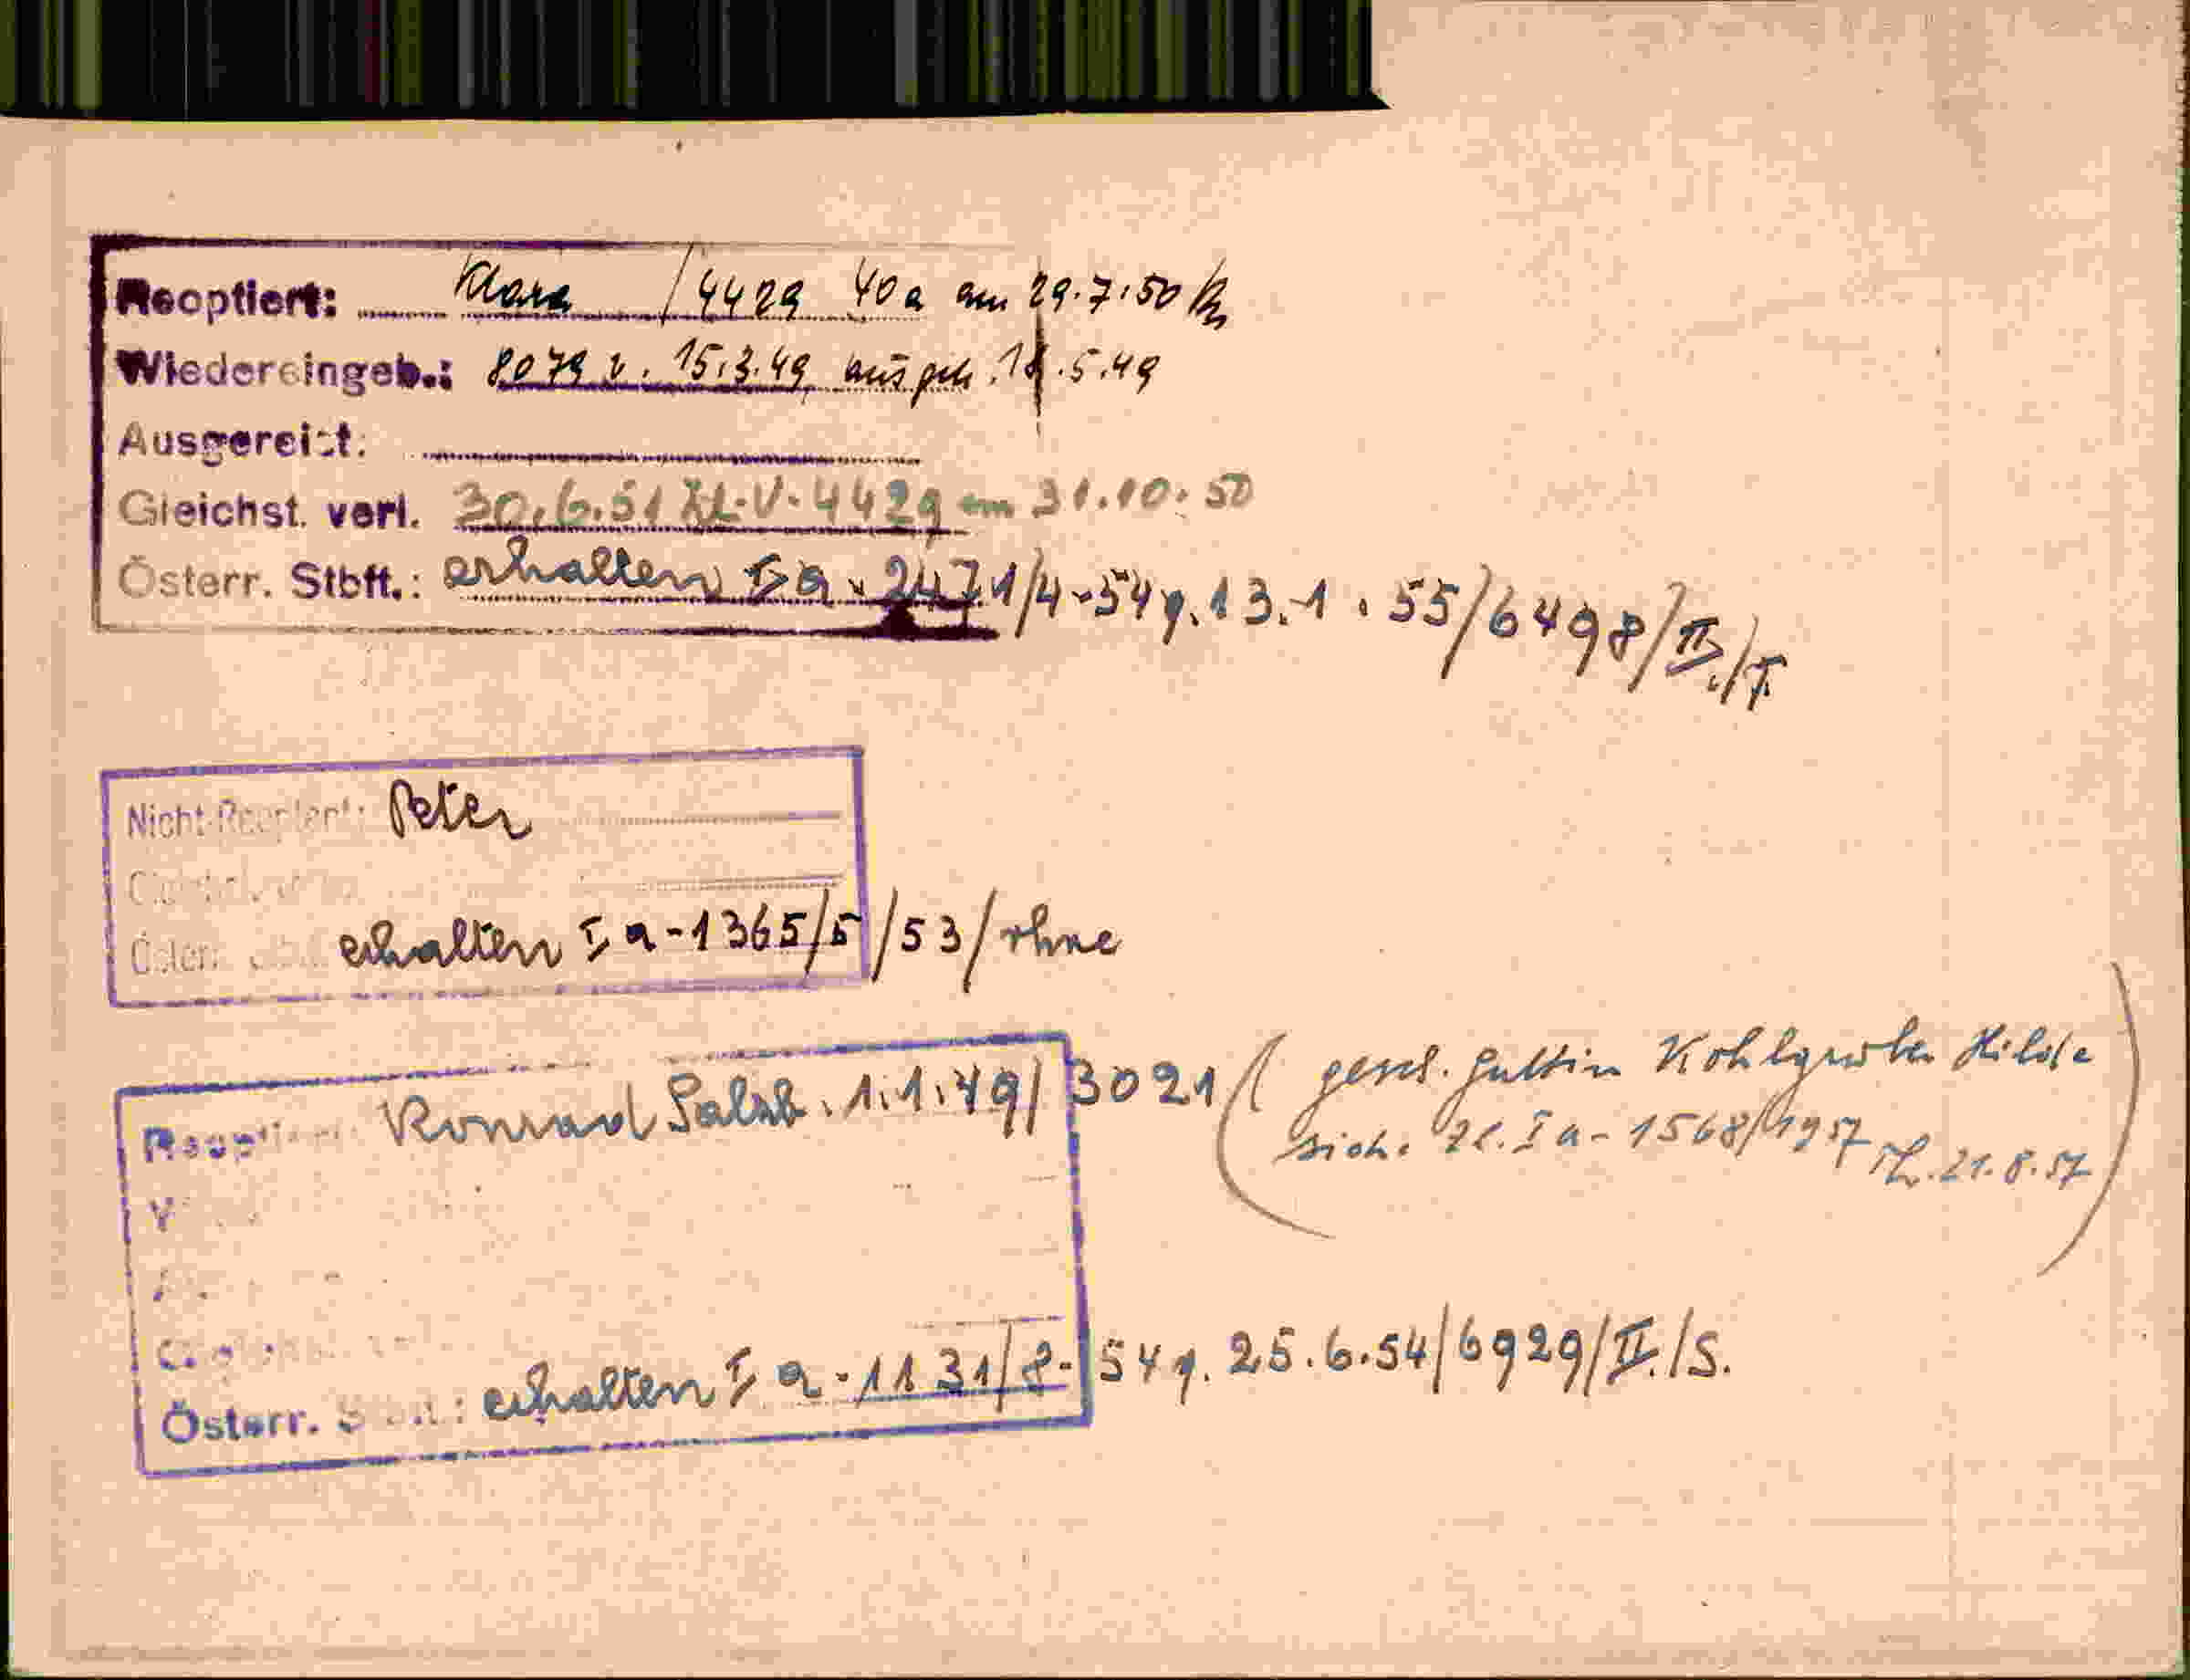 Reoptiert: Klara /4429 40a am 29.7.50
Wiedereingeb.: 8079 v. 15.3.49 ausgeh. 18.5.49
Ausgereist:
Gleichst. verl. 30.6.51 Zl. V. 4429 am 31.10.50
Österr. Stbft.: erhalten I a - 2471/4-54 g. 13.1.55/6498/II./T.
Nicht-Reoptant: Peter
Österr. erhalten I a - 1365/5/53/ohne
Reoptiert: Konrad Salzb. 1.1.49/3021
(gesch. Gattin Kohlgruber Hilde
siehe Zl. I a - 1568/1957 21.8.57)
Österr. Stbft.: erhalten I a - 1131/8-54 g. 25.6.54/6929/II./S.